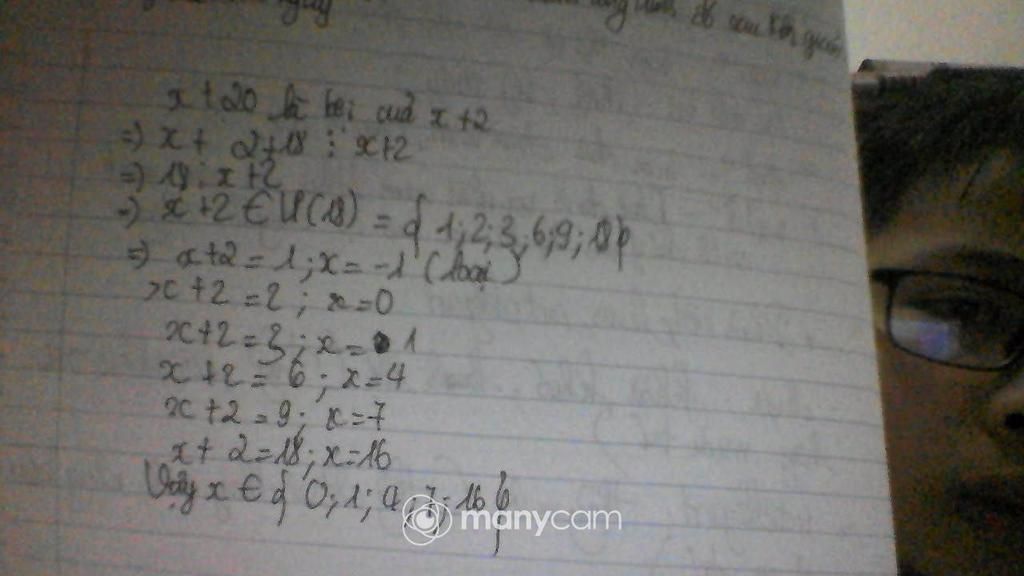 x + 20 là bội của x + 2
=) x + 2 + 18 ⋮ x + 2
=) 18 ⋮ x + 2
=) x + 2 ∈ Ư(18) = { 1; 2; 3; 6; 9; 18 }
=) x + 2 = 1; x = -1 (loại)
x + 2 = 2; x = 0
x + 2 = 3; x = 1
x + 2 = 6; x = 4
x + 2 = 9; x = 7
x + 2 = 18; x = 16
Vậy x ∈ { 0; 1; 4; 7; 16 }
manycam